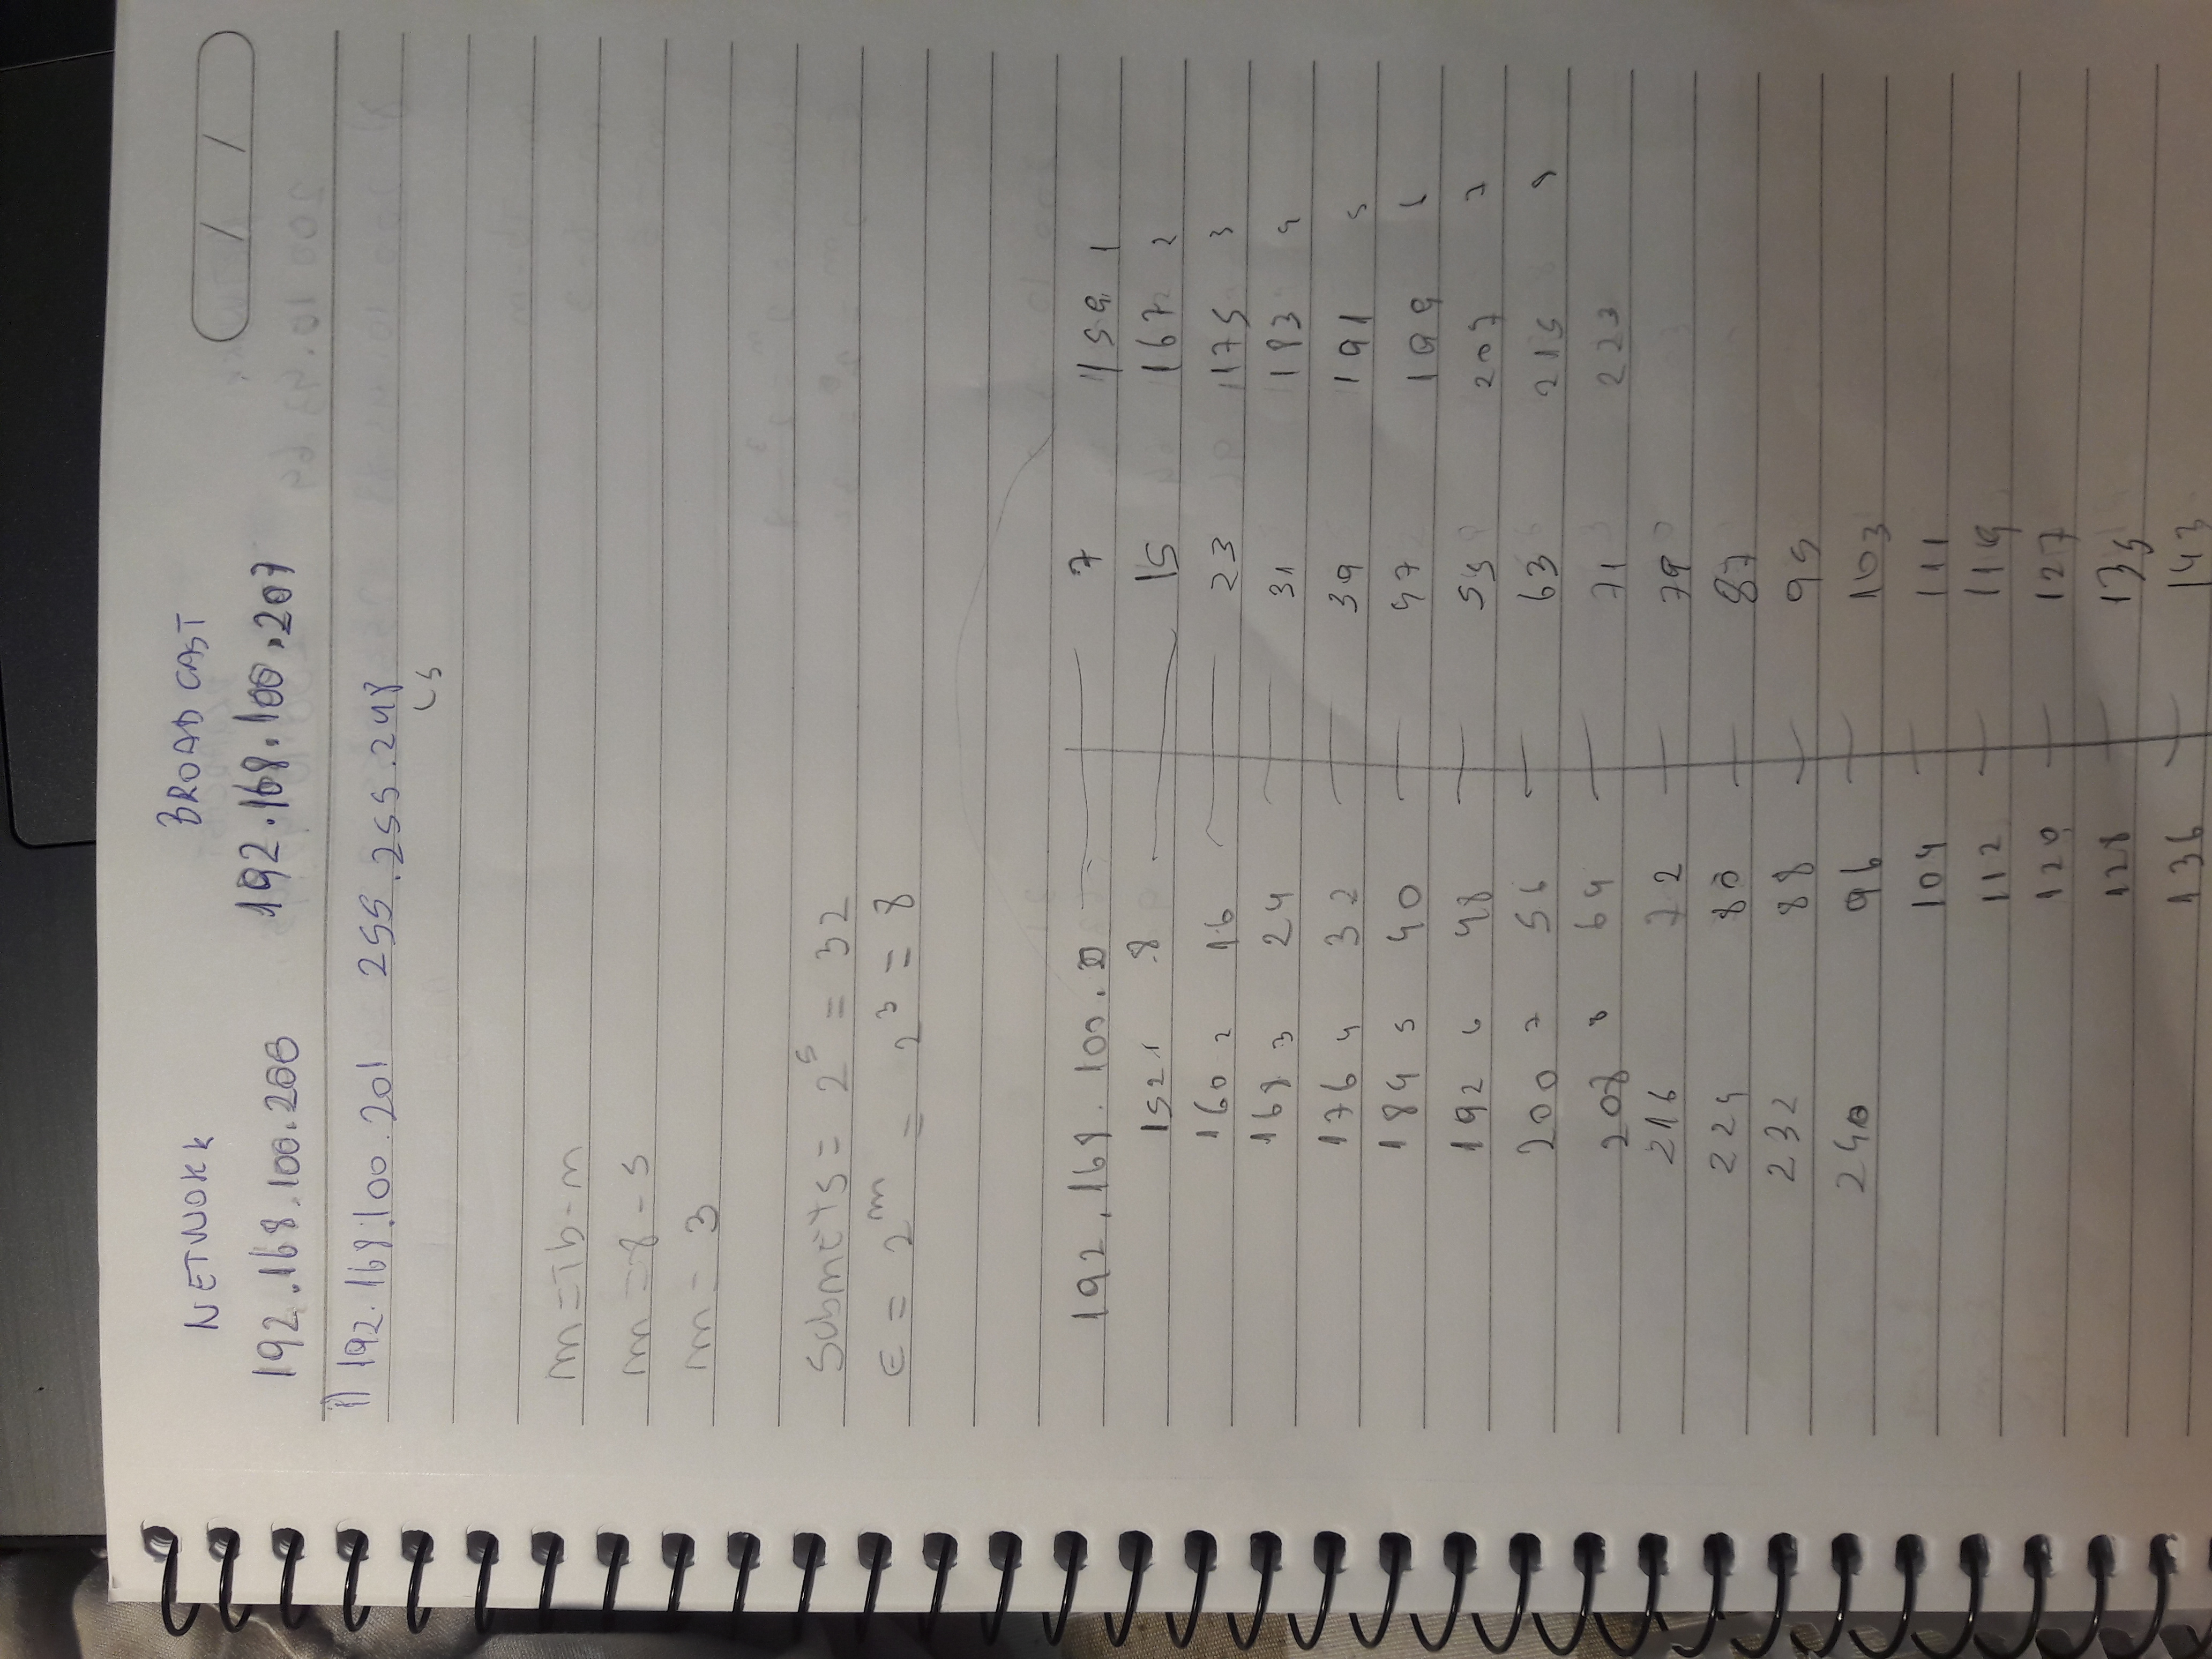 NETWORK BROAD CAST
192.168.100.200 192.168.100.207
1) 192.168.100.201 255.255.248
↳5
m = Tb - n
m = 8 - 5
m = 3
Subnets = 2⁵ = 32
E = 2ᵐ = 2³ = 8
192.168.100.0 7 159 1
152 1 8 15 167 2
160 2 16 23 175 3
168 3 24 31 183 4
176 4 32 39 191 5
184 5 40 47 199 6
192 6 48 55 207 7
200 7 56 63 215 8
208 8 64 71 223
216 72 79
224 80 87
232 88 95
240 96 103
104 111
112 119
120 127
128 135
136 143